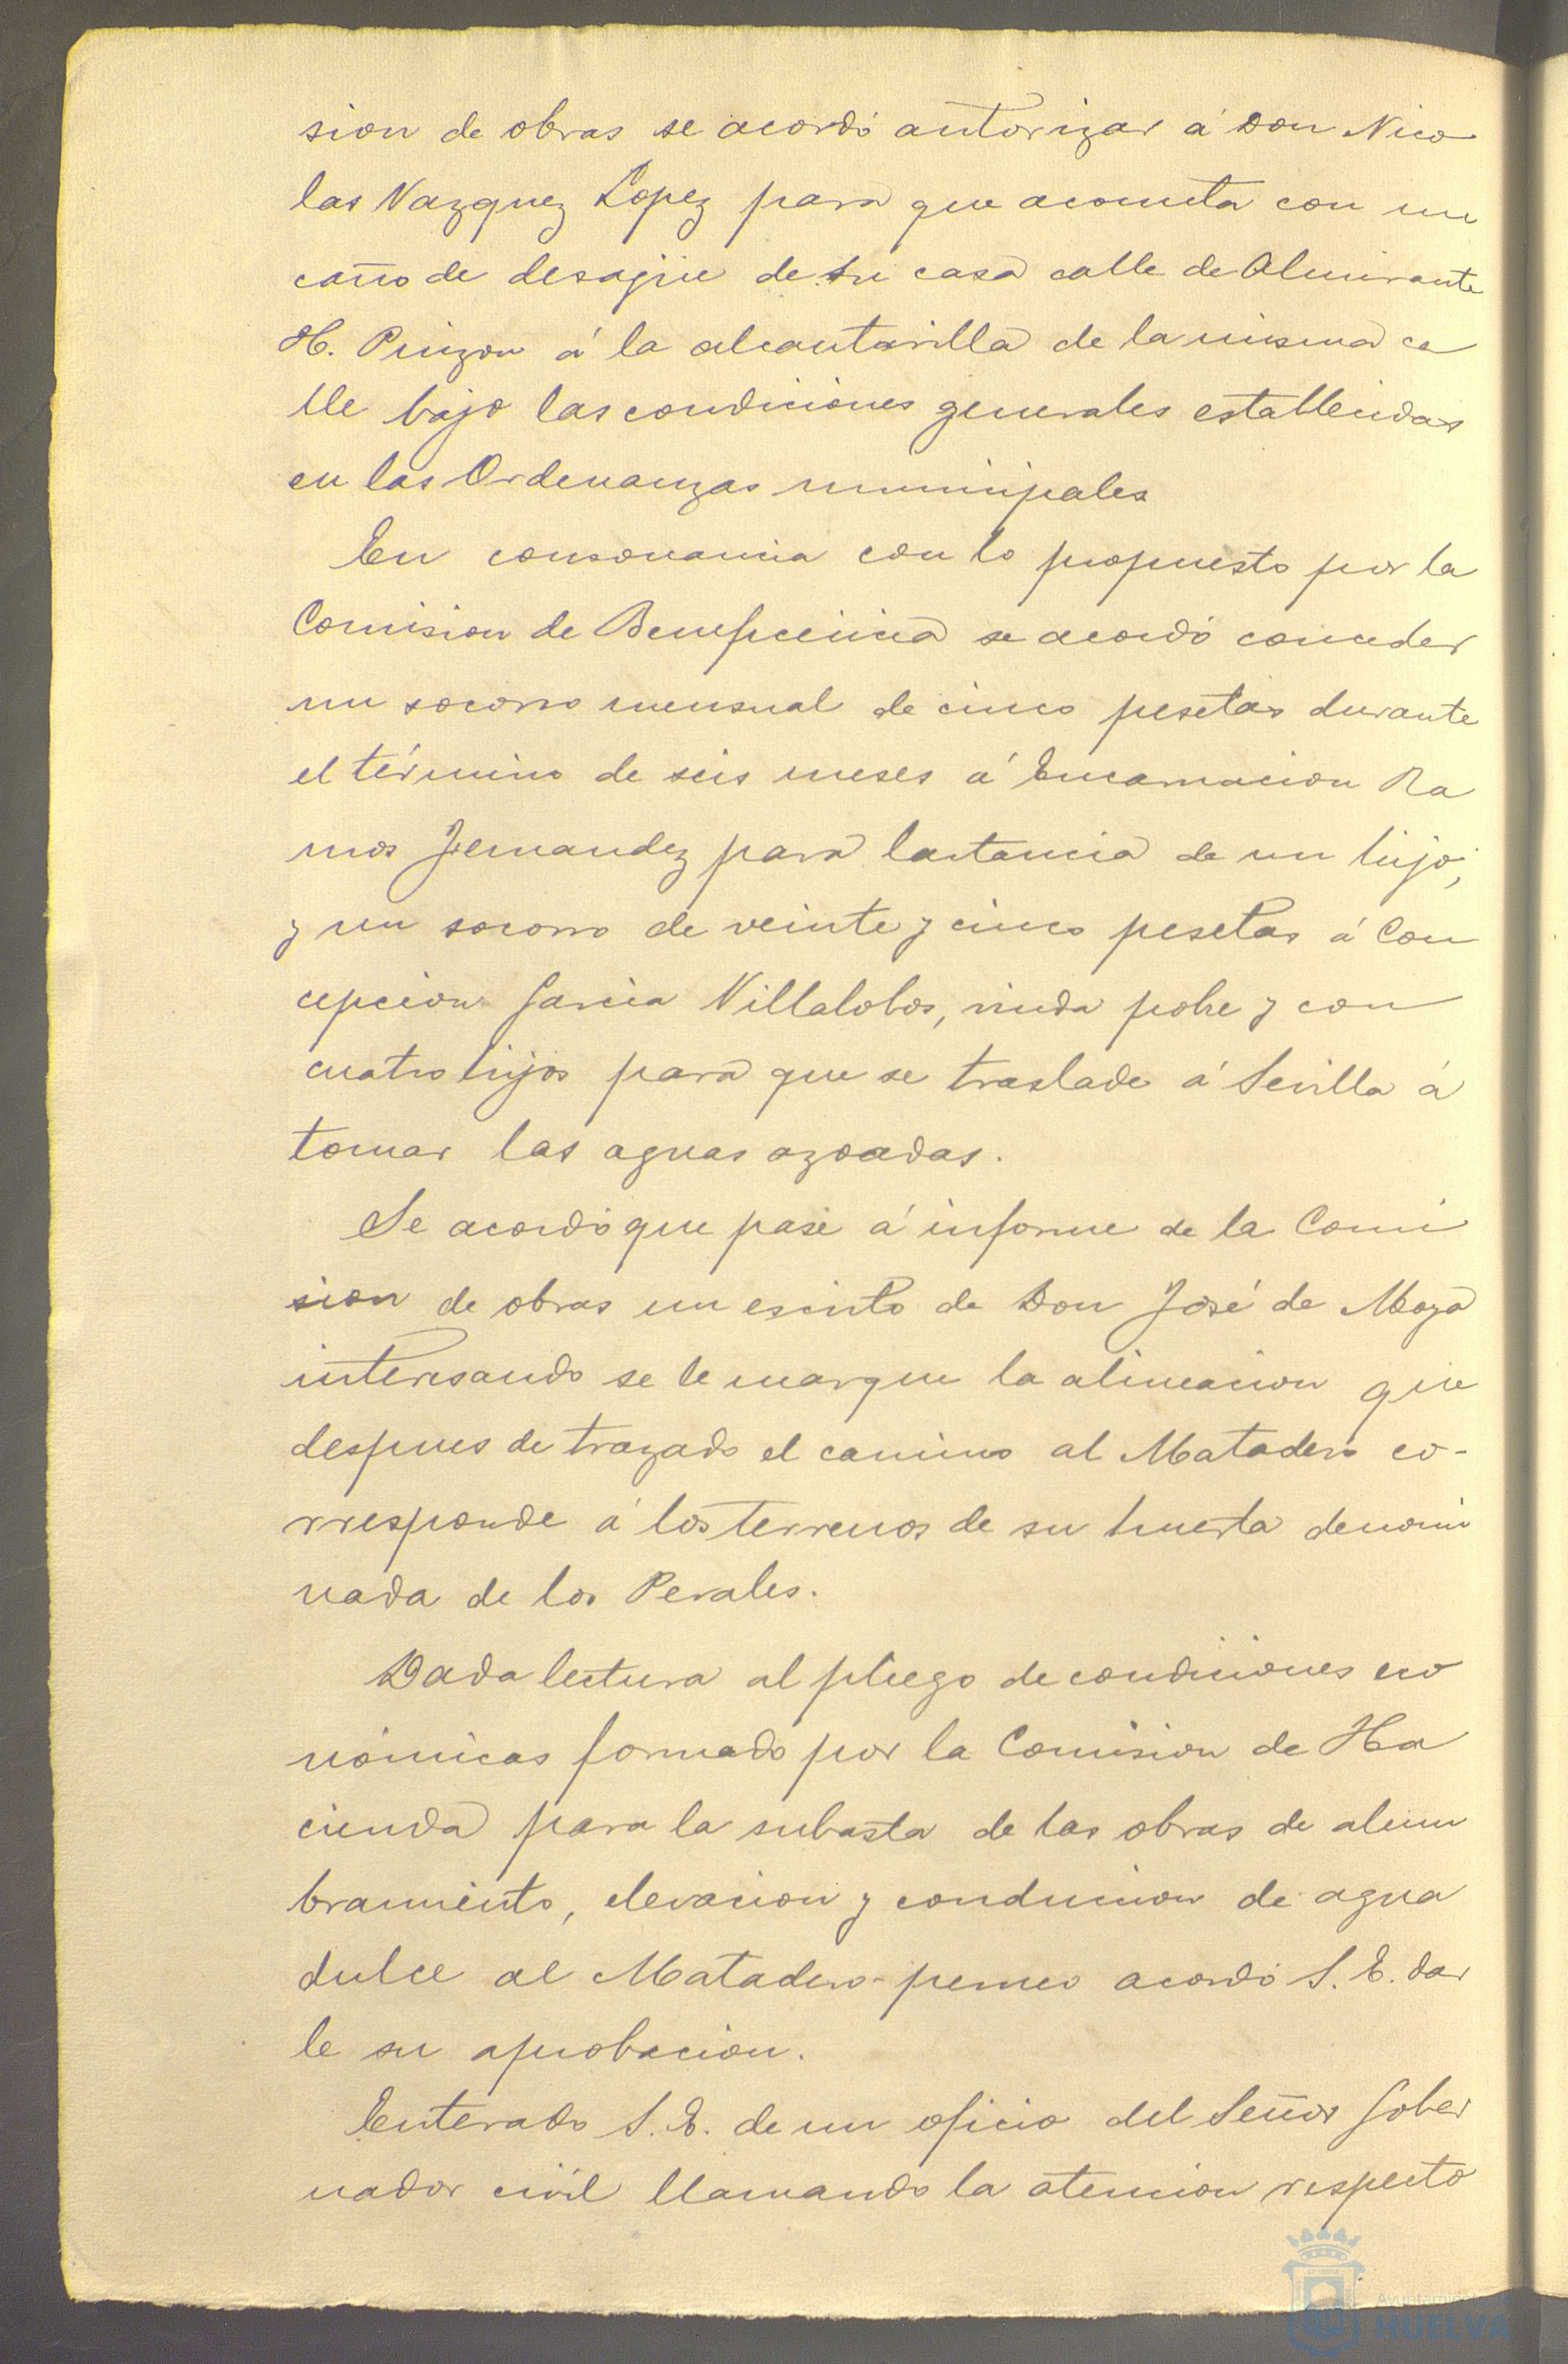 sion de obras se acordó autorizar á Don Nico
las Vazquez Lopez para que acometa con un
caño de desagüe de su casa calle de Almirante
H. Pinzon á la alcantarilla de la misma ca
lle bajo las condiciones generales establecidas
en las Ordenanzas municipales
En consonancia con lo propuesto por la
Comision de Beneficencia se acordó conceder
un socorro mensual de cinco pesetas durante
el término de seis meses á Encarnacion Ra
mos Fernandez para lactancia de un hijo;
y un socorro de veinte y cinco pesetas á Con
cepcion Garcia Villalobos, viuda pobre y con
cuatro hijos para que se traslade á Sevilla á
tomar las aguas azoadas.
Se acordó que pase á informe de la Comi
sion de obras un escrito de Don José de Moya
interesando se le marque la alineacion que
despues de trazado el camino al Matadero co-
rresponde á los terrenos de su huerta denomi
nada de los Perales.
Dada lectura al pliego de condiciones eco
nómicas formado por la Comision de Ha
cienda para la subasta de las obras de alum
bramiento, elevacion y conduccion de agua
dulce al Matadero acordó S. E. dar
le su aprobacion.
Enterado S. E. de un oficio del Señor Gober
nador civil llamando la atencion respecto
Ayuntamiento
HUELVA